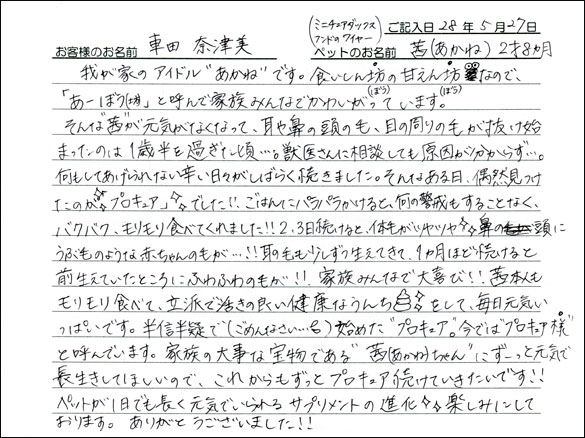 (ミニチュアダックスフンドのワイヤー)
ご記入日 28年5月27日
お客様のお名前 車田 奈津美 ペットのお名前 茜(あかね) 2才8ヵ月
我が家のアイドル"あかね"です。食いしん坊の甘えん坊なので、
「あーぼう(坊)」と呼んで家族みんなでかわいがっています。
(ぼう) (ぼう)
そんな"茜"が元気がなくなって、耳や鼻の頭の毛、目の周りの毛が抜け始
まったのは1歳半を過ぎた頃…。獣医さんに相談しても原因が分からず…。
何もしてあげられない辛い日々がしばらく続きました。そんなある日、偶然見つけ
たのが"プロキュア"でした!!ごはんにパラパラかけると、何の警戒もすることなく、
バクバク、モリモリ食べてくれました!!2、3日続けると、体毛がツヤツヤ 鼻の頭に
うぶものような赤ちゃんの毛が…!!耳の毛も少しずつ生えてきて、1ヵ月ほど続けると
前生えていたところにふわふわの毛が!!家族みんなで大喜び!!茜本人も
モリモリ食べて、立派で活きの良い健康なうんちをして、毎日元気い
っぱいです。半信半疑で(ごめんなさい…)始めた"プロキュア"。今では"プロキュア様"
と呼んでいます。家族の大事な宝物である"茜(あかね)ちゃん"にずーっと元気で
長生きしてほしいので、これからもずっとプロキュア続けていきたいです!!
ペットが1日でも長く元気でいられるサプリメントの進化 楽しみにして
おります。ありがとうございました!!